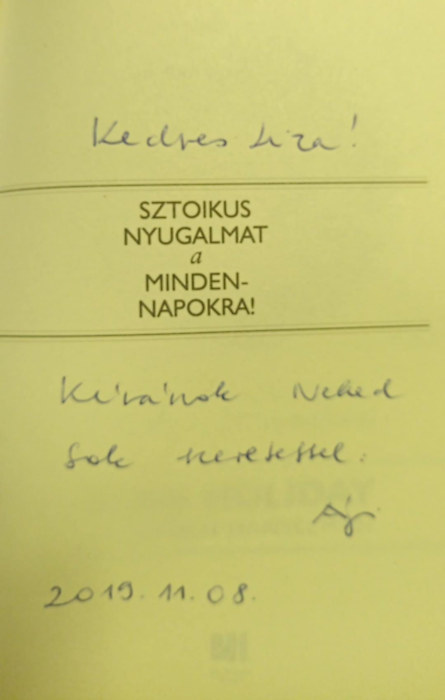 Kedves Liza!
SZTOIKUS
NYUGALMAT
a
MINDEN-
NAPOKRA!
Kívánok Neked
Sok szeretettel:
Ági
2019. 11. 08.